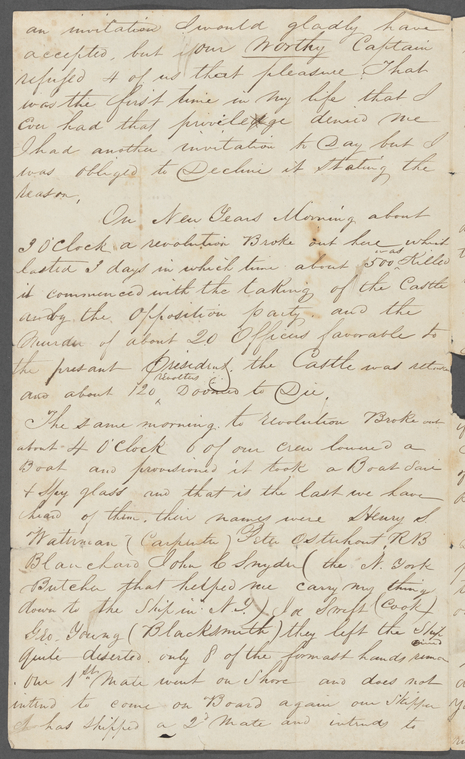 an invitation I would gladly have
accepted, but our Worthy Captain
refused 4 of us that pleasure. That
was the first time in my life that I
Ever had that privilege denied me
I had another invitation to Day but I
was obliged to Decline it stating the
reason.
On New Years Morning about
3 OClock a revolution Broke out here which
lasted 3 days in which time about 500 was Killed
it commenced with the taking of the Castle
by the Opposition party and the
Murder of about 20 Officers favorable to
the presant President, the Castle was
and about 120 revolters Doomed to Die.
The same morning to revolution Broke out
about 4 OClock 6 of our crew lowered a
Boat and provisioned it took a Boat
& Spy glass and that is the last we have
heard of them. their names were Henry S.
(Carpenter) Peter Osterhout, R B
Blanchard John C Snyder (the N. York
Butcher that helped me carry my thing
down to the Ship in N.Y.) Joe Swift (Cook)
Geo. Young (Blacksmith) they left the Ship
quite deserted only 8 of the formast hands
our 1st Mate went on Shore and does not
intend to come on Board again our Skipper
has shipped a 2d Mate and intends to